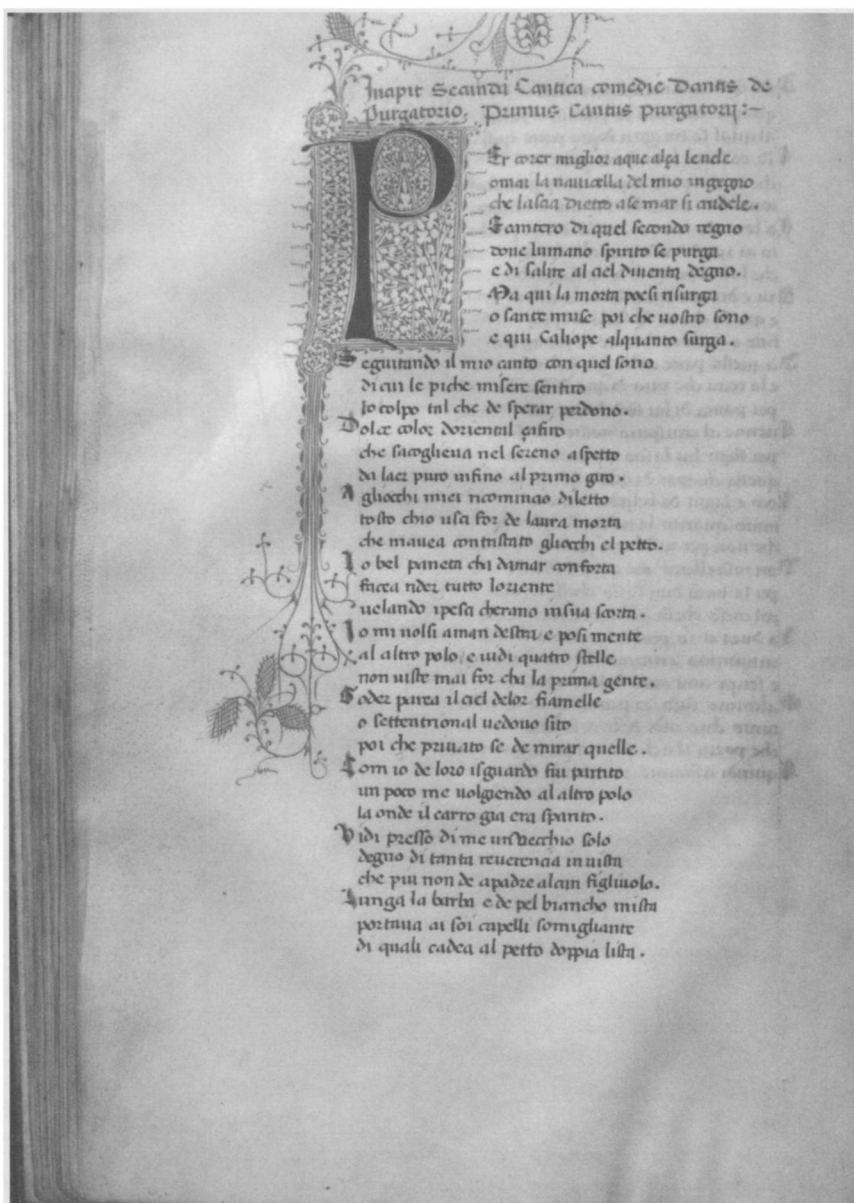 Incipit Secunda Cantica comedie Dantis de
Purgatorio. Primus Cantus Purgatorij:-
PEr corer miglior aque alça le uele
omai la nauicella del mio ingegno
che lascia dietro a se mar si crudele.
E cantero di quel secondo regno
doue lumano spirito se purga
e di salire al ciel diuenta degno.
Ma qui la morta poesi risurga
o sante muse poi che uostro sono
e qui Caliope alquanto surga.
Seguitando il mio canto con quel sono
di cui le piche misere sentiro
lo colpo tal che de sperar perdono.
Dolce color doriental çafiro
che sacoglieua nel sereno aspetto
da laer puro infino al primo giro.
A gliocchi miei ricomincio diletto
tosto chio usci for de laura morta
che mauea contristato gliocchi el petto.
Lo bel paneta cha damar conforta
facea rider tutto loriente
uelando ipesa cherano in sua scorta.
Io mi uolsi aman destra e posi mente
al altro polo e uidi quatro stelle
non uiste mai for cha la prima gente.
Goder parea il ciel de lor fiamelle
o settentrional uedouo sito
poi che priuato se de mirar quelle.
Com io de loro isguardo fui partito
un poco me uolgiendo al altro polo
la onde il carro gia era sparito.
Vidi presso di me un Vecchio solo
degno di tanta reuerencia in uista
che piu non de a padre alcun figliuolo.
Lunga la barba e de pel biancho mista
portaua ai soi capelli somigliante
di quali cadea al petto doppia lista.